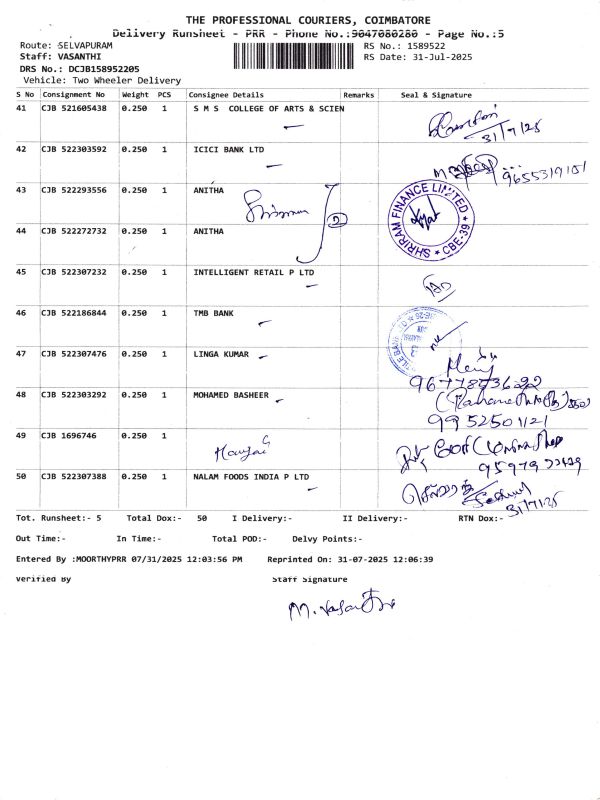 THE PROFESSIONAL COURIERS, COIMBATORE
Delivery Runsheet - PRR - Phone No.:9047080280 - Page No.:5
Route: SELVAPURAM RS No.: 1589522
Staff: VASANTHI RS Date: 31-Jul-2025
DRS No.: DCJB158952205
Vehicle: Two Wheeler Delivery
S No Consignment No Weight PCS Consignee Details Remarks Seal & Signature
41 CJB 521605438 0.250 1 S M S COLLEGE OF ARTS & SCIEN
31/7/25
42 CJB 522303592 0.250 1 ICICI BANK LTD
9655319101
43 CJB 522293556 0.250 1 ANITHA
2
SHRIRAM FINANCE LIMITED * CBE-39 *
44 CJB 522272732 0.250 1 ANITHA
45 CJB 522307232 0.250 1 INTELLIGENT RETAIL P LTD
46 CJB 522186844 0.250 1 TMB BANK
47 CJB 522307476 0.250 1 LINGA KUMAR
48 CJB 522303292 0.250 1 MOHAMED BASHEER
9952501121
49 CJB 1696746 0.250 1
50 CJB 522307388 0.250 1 NALAM FOODS INDIA P LTD
31/7/25
Tot. Runsheet:- 5 Total Dox:- 50 I Delivery:- II Delivery:- RTN Dox:-
Out Time:- In Time:- Total POD:- Delvy Points:-
Entered By :MOORTHYPRR 07/31/2025 12:03:56 PM Reprinted On: 31-07-2025 12:06:39
Verified By Staff Signature